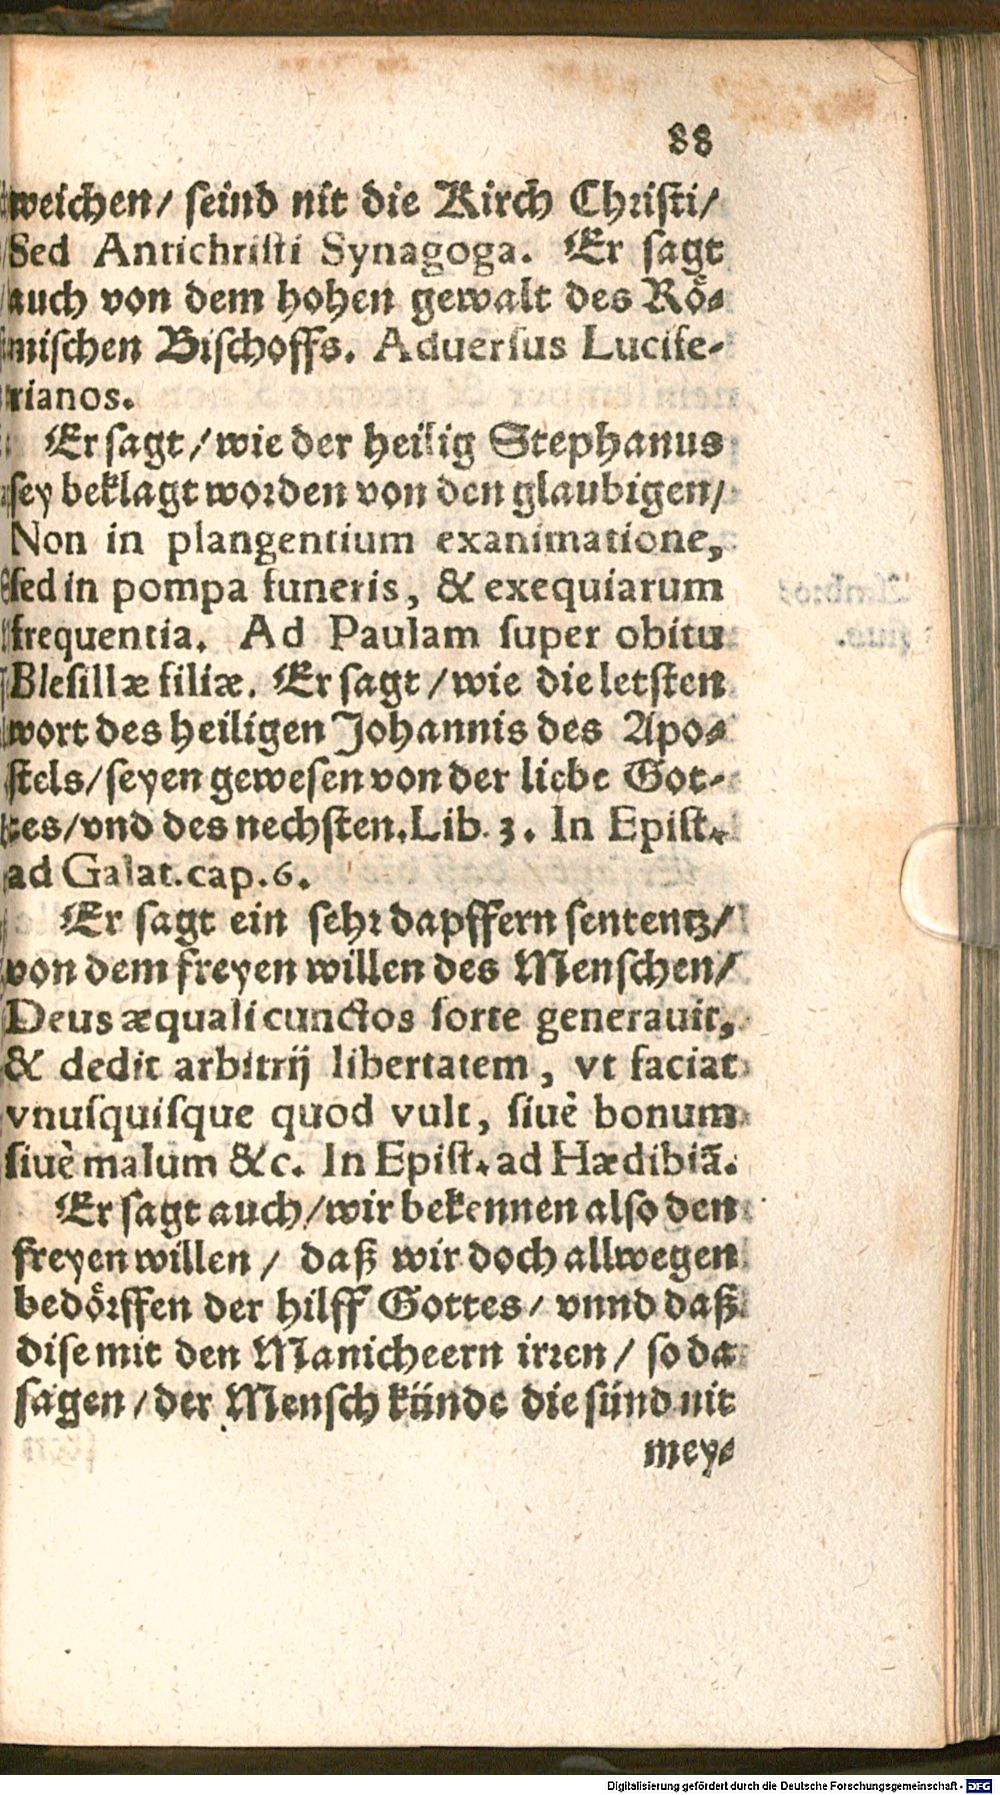 88
weichen/ seind nit die Kirch Christi/
Sed Antichristi Synagoga. Er sagt
auch von dem hohen gewalt des Rö-
mischen Bischoffs. Aduersus Lucife-
rianos.
Er sagt/ wie der heilig Stephanus
sey beklagt worden von den glaubigen/
Non in plangentium exanimatione,
sed in pompa funeris, & exequiarum
frequentia. Ad Paulam super obitu
Blesillæ filiæ. Er sagt/ wie die letsten
wort des heiligen Johannis des Apo-
stels/ seyen gewesen von der liebe Got-
tes/ vnd des nechsten. Lib. 3. In Epist.
ad Galat. cap. 6.
Er sagt ein sehr dapffern sententz/
von dem freyen willen des Menschen/
Deus æquali cunctos sorte generauit,
& dedit arbitrij libertatem, vt faciat
vnusquisque quod vult, siuè bonum
siuè malum &c. In Epist. ad Hædibiã.
Er sagt auch/ wir bekennen also den
freyen willen/ daß wir doch allwegen
bedörffen der hilff Gottes/ vnnd daß
dise mit den Manicheern irren/ so da
sagen/ der Mensch künde die sünd nit
mey-
Digitalisierung gefördert durch die Deutsche Forschungsgemeinschaft - DFG